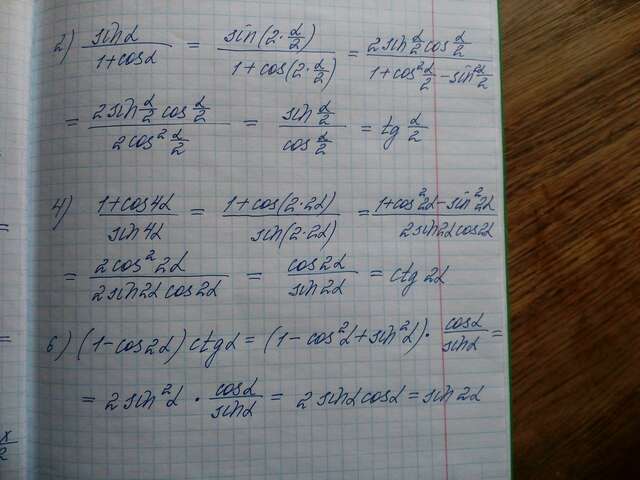 2) sinα/(1+cosα) = sin(2·α/2)/(1+cos(2·α/2)) = 2sin α/2 cos α/2/(1+cos² α/2 − sin² α/2)
= 2sin α/2 cos α/2/(2cos² α/2) = sin α/2/cos α/2 = tg α/2
4) (1+cos4α)/sin4α = (1+cos(2·2α))/sin(2·2α) = (1+cos²2α−sin²2α)/(2sin2αcos2α)
= 2cos²2α/(2sin2αcos2α) = cos2α/sin2α = ctg2α
6) (1−cos2α)ctgα = (1−cos²α+sin²α)·cosα/sinα =
= 2sin²α · cosα/sinα = 2sinαcosα = sin2α
=
=
x/2